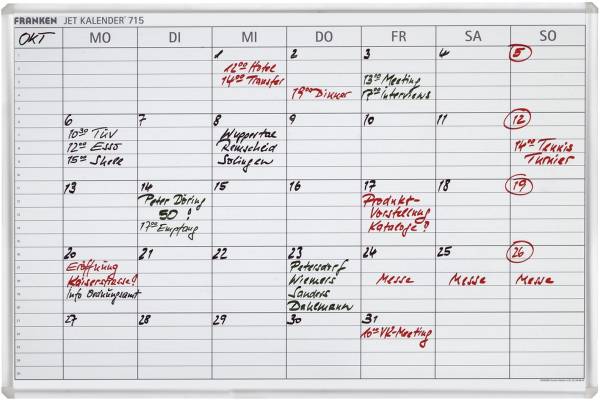 FRANKEN JET KALENDER® 715
OKT MO DI MI DO FR SA SO
1 2 3 4 5
12⁰⁰ Hotel
14⁰⁰ Transfer
19⁰⁰ Dinner
13³⁰ Meeting
17⁰⁰ Interviews
6 7 8 9 10 11 12
10³⁰ TÜV
12⁰⁰ ESSO
15⁰⁰ Shell
Wuppertal
Remscheid
Solingen
14⁰⁰ Tennis
Turnier
13 14 15 16 17 18 19
Peter Döring
50 !
17⁰⁰ Empfang
Produkt-
Vorstellung
Kataloge?
20 21 22 23 24 25 26
Eröffnung
Kaiserstrasse!
Info Ordnungsamt
Petersdorf
Wiemers
Sanders
Dahlmann
Messe Messe Messe
27 28 29 30 31
16⁰⁰ VK-Meeting